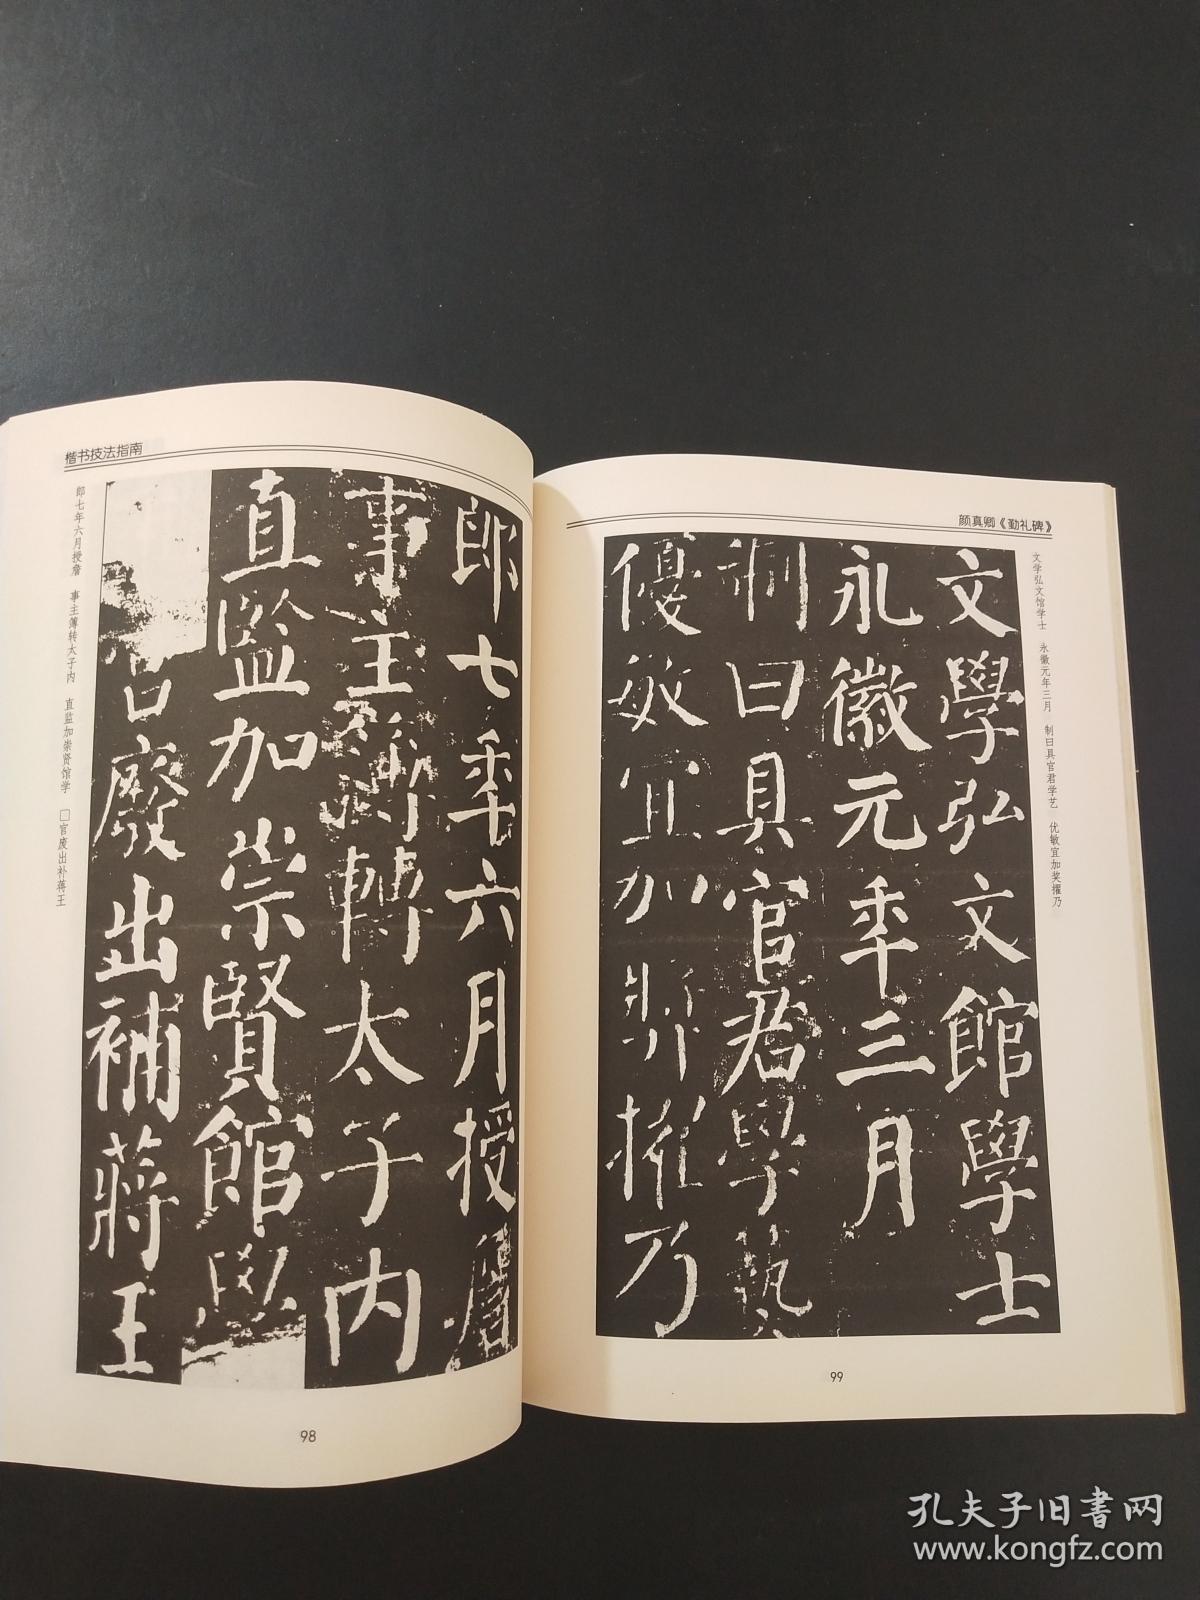 楷书技法指南
郎七年六月授詹　事主薄转太子内　直监加崇贤馆学　□官废出补蒋王
郎七年六月授詹
事主薄轉太子内
直監加崇賢館學
宮廢出補蔣王
98
颜真卿《勤礼碑》
文学弘文馆学士　永徽元年三月　制曰具官君学艺　优敏宜加奖擢乃
文學弘文館學士
永徽元年三月
制曰具官君學藝
優敏宜加獎擢乃
99
孔夫子旧书网
www.kongfz.com